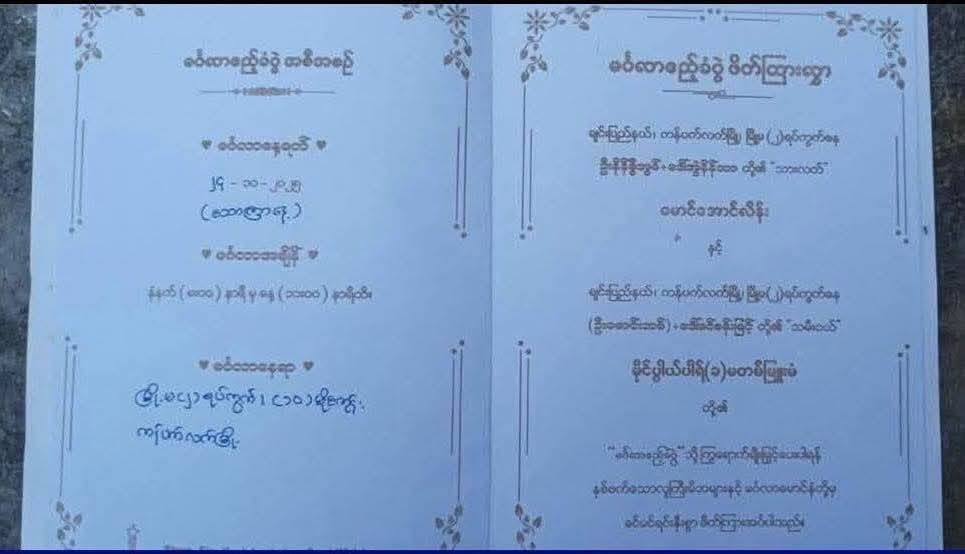 မင်္ဂလာဧည့်ခံပွဲ အစီအစဉ်
မင်္ဂလာနေ့ရက်
၂၄ - ၁၀ - ၂၀၂၅
(သောကြာနေ့)
မင်္ဂလာအချိန်
နံနက် ( ၈း၀၀ ) နာရီ မှ နေ့ ( ၁၁း၀၀ ) နာရီထိ။
မင်္ဂလာနေရာ
မြို့မ(၂)ရပ်ကွက်၊ (၁၀)
ကန်ပက်လက်မြို့
မင်္ဂလာဧည့်ခံပွဲ ဖိတ်ကြားလွှာ
ချင်းပြည်နယ်၊ ကန်ပက်လက်မြို့၊ မြို့မ(၂)ရပ်ကွက်နေ
တို့၏ "သားလတ်"
မောင်အောင်လိန်း
နှင့်
ချင်းပြည်နယ်၊ ကန်ပက်လက်မြို့၊ မြို့မ(၂)ရပ်ကွက်နေ
တို့၏ "သမီးငယ်"
မိုင်ပွါယ်ပါရ်(ခ)မတစ်ဖြူးမံ
တို့၏
"မင်္ဂလာဧည့်ခံပွဲ" သို့ ကြွရောက်ချီးမြှင့်ပေးပါရန်
နှစ်ဖက်သောလူကြီးမိဘများနှင့် မင်္ဂလာမောင်နှံတို့မှ
ခင်မင်ရင်းနှီးစွာ ဖိတ်ကြားအပ်ပါသည်။